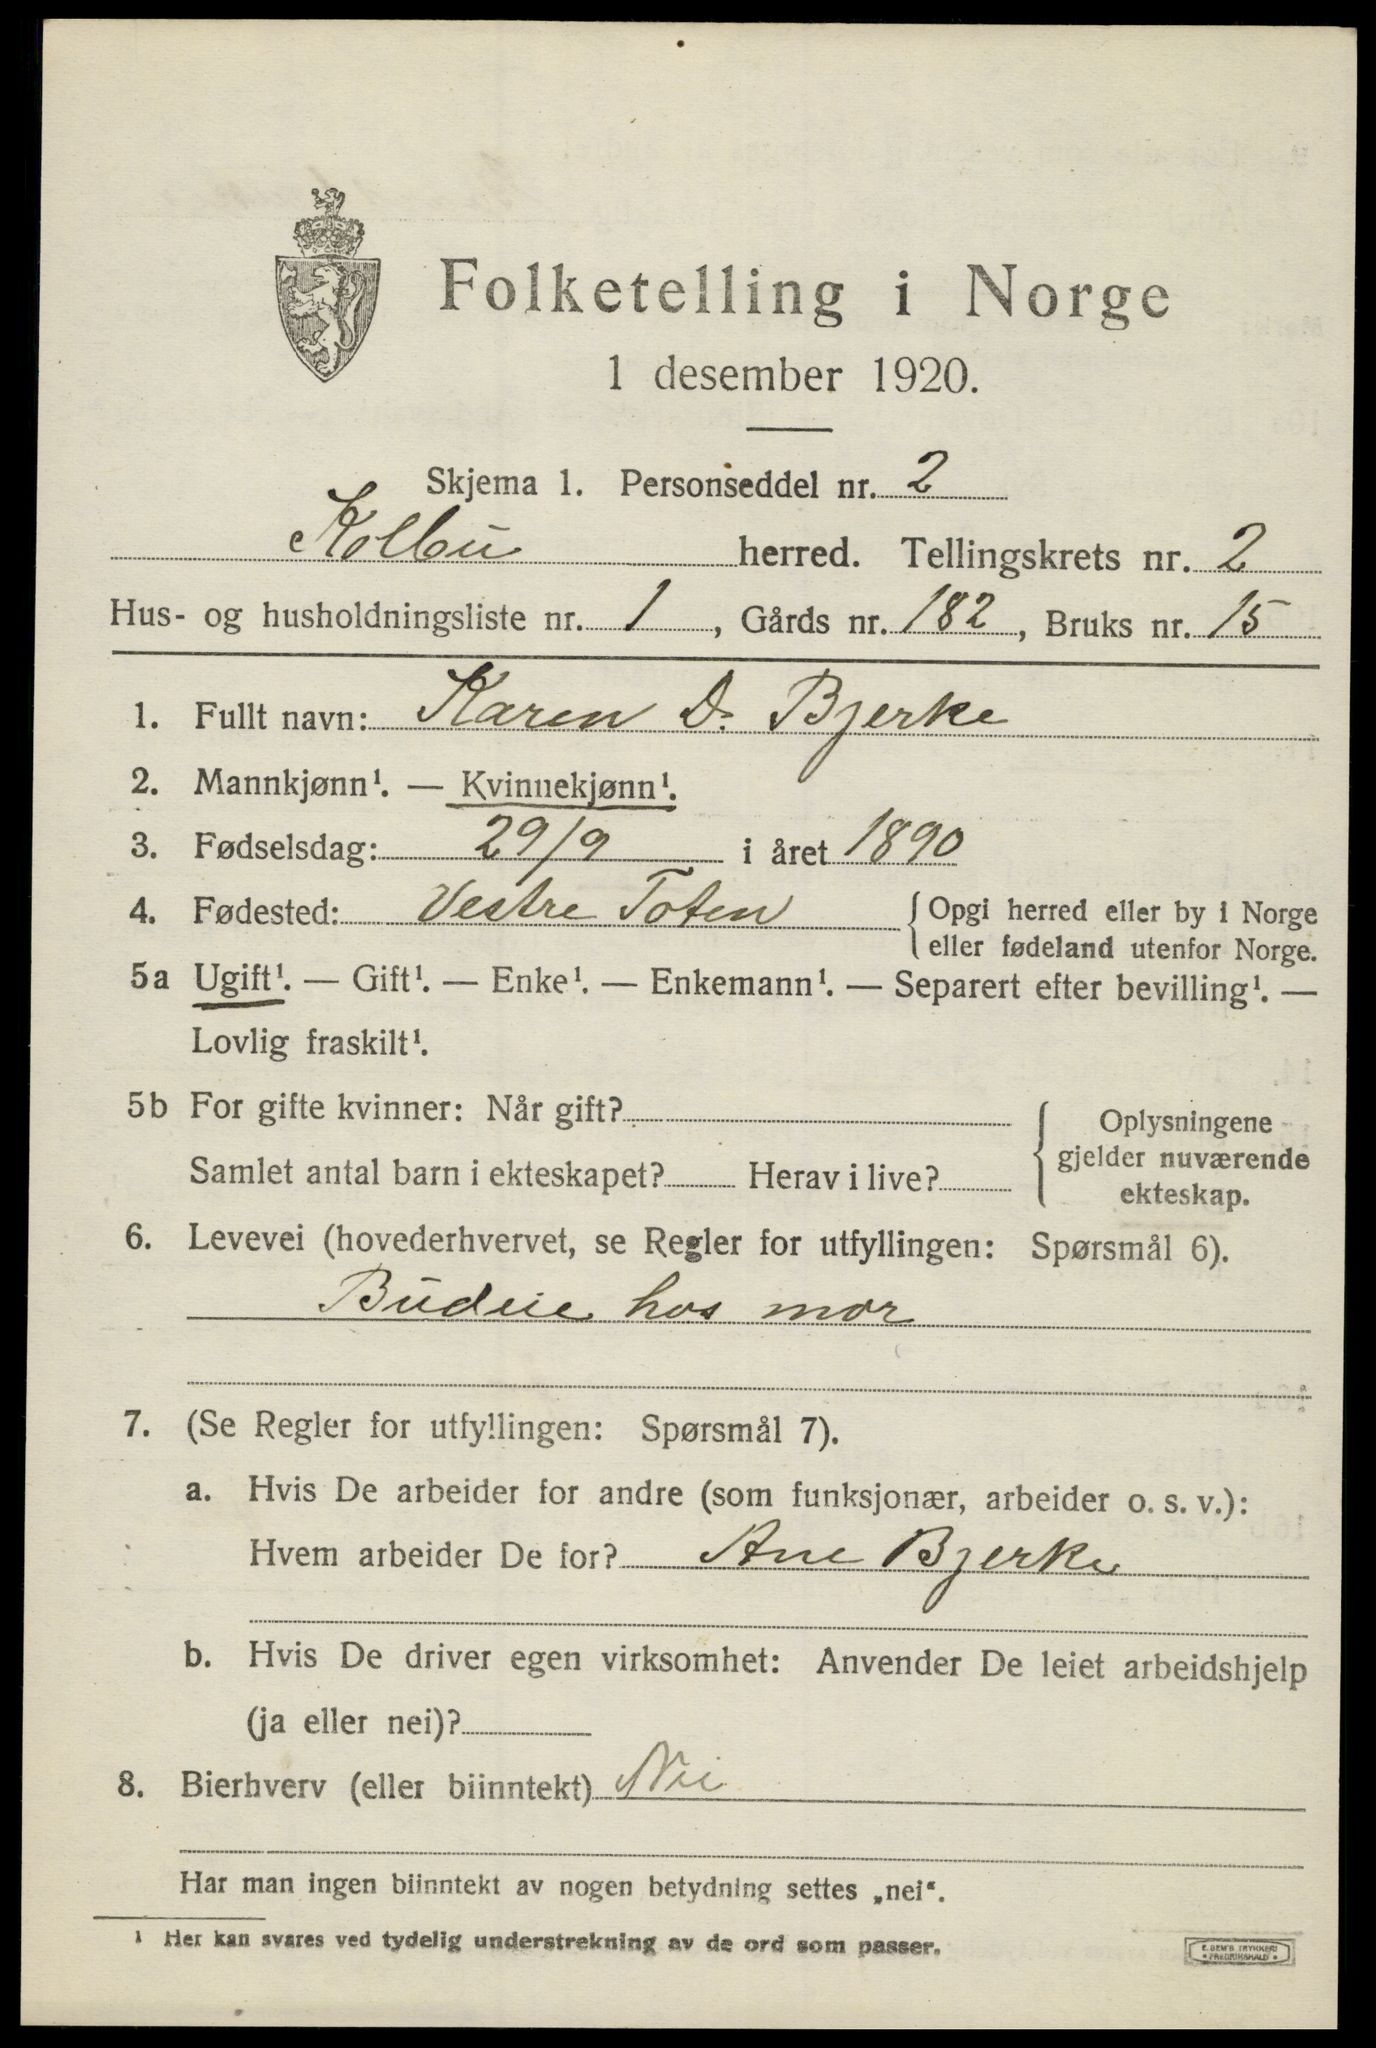 Folketelling i Norge
1 desember 1920.
Skjema 1. Personseddel nr. 2
Kolbu herred. Tellingskrets nr. 2
Hus- og husholdningsliste nr. 1, Gårds nr. 182, Bruks nr. 15
1. Fullt navn: Karen D. Bjerke
2. Mannkjønn¹. — Kvinnekjønn¹.
3. Fødselsdag: 29/9 i året 1890
4. Fødested: Vestre Toten { Opgi herred eller by i Norge
eller fødeland utenfor Norge.
5a Ugift¹. — Gift¹. — Enke¹. — Enkemann¹. — Separert efter bevilling¹. —
Lovlig fraskilt¹.
5b For gifte kvinner: Når gift?
Samlet antal barn i ekteskapet? Herav i live?
{ Oplysningene
gjelder nuværende
ekteskap.
6. Levevei (hovederhvervet, se Regler for utfyllingen: Spørsmål 6).
Budeie hos mor
7. (Se Regler for utfyllingen: Spørsmål 7).
a. Hvis De arbeider for andre (som funksjonær, arbeider o. s. v.):
Hvem arbeider De for? Ane Bjerke
b. Hvis De driver egen virksomhet: Anvender De leiet arbeidshjelp
(ja eller nei)?
8. Bierhverv (eller biinntekt) Nei
Har man ingen biinntekt av nogen betydning settes „nei“.
¹ Her kan svares ved tydelig understrekning av de ord som passer.
E. SEM'S TRYKKERI
• FREDRIKSHALD •